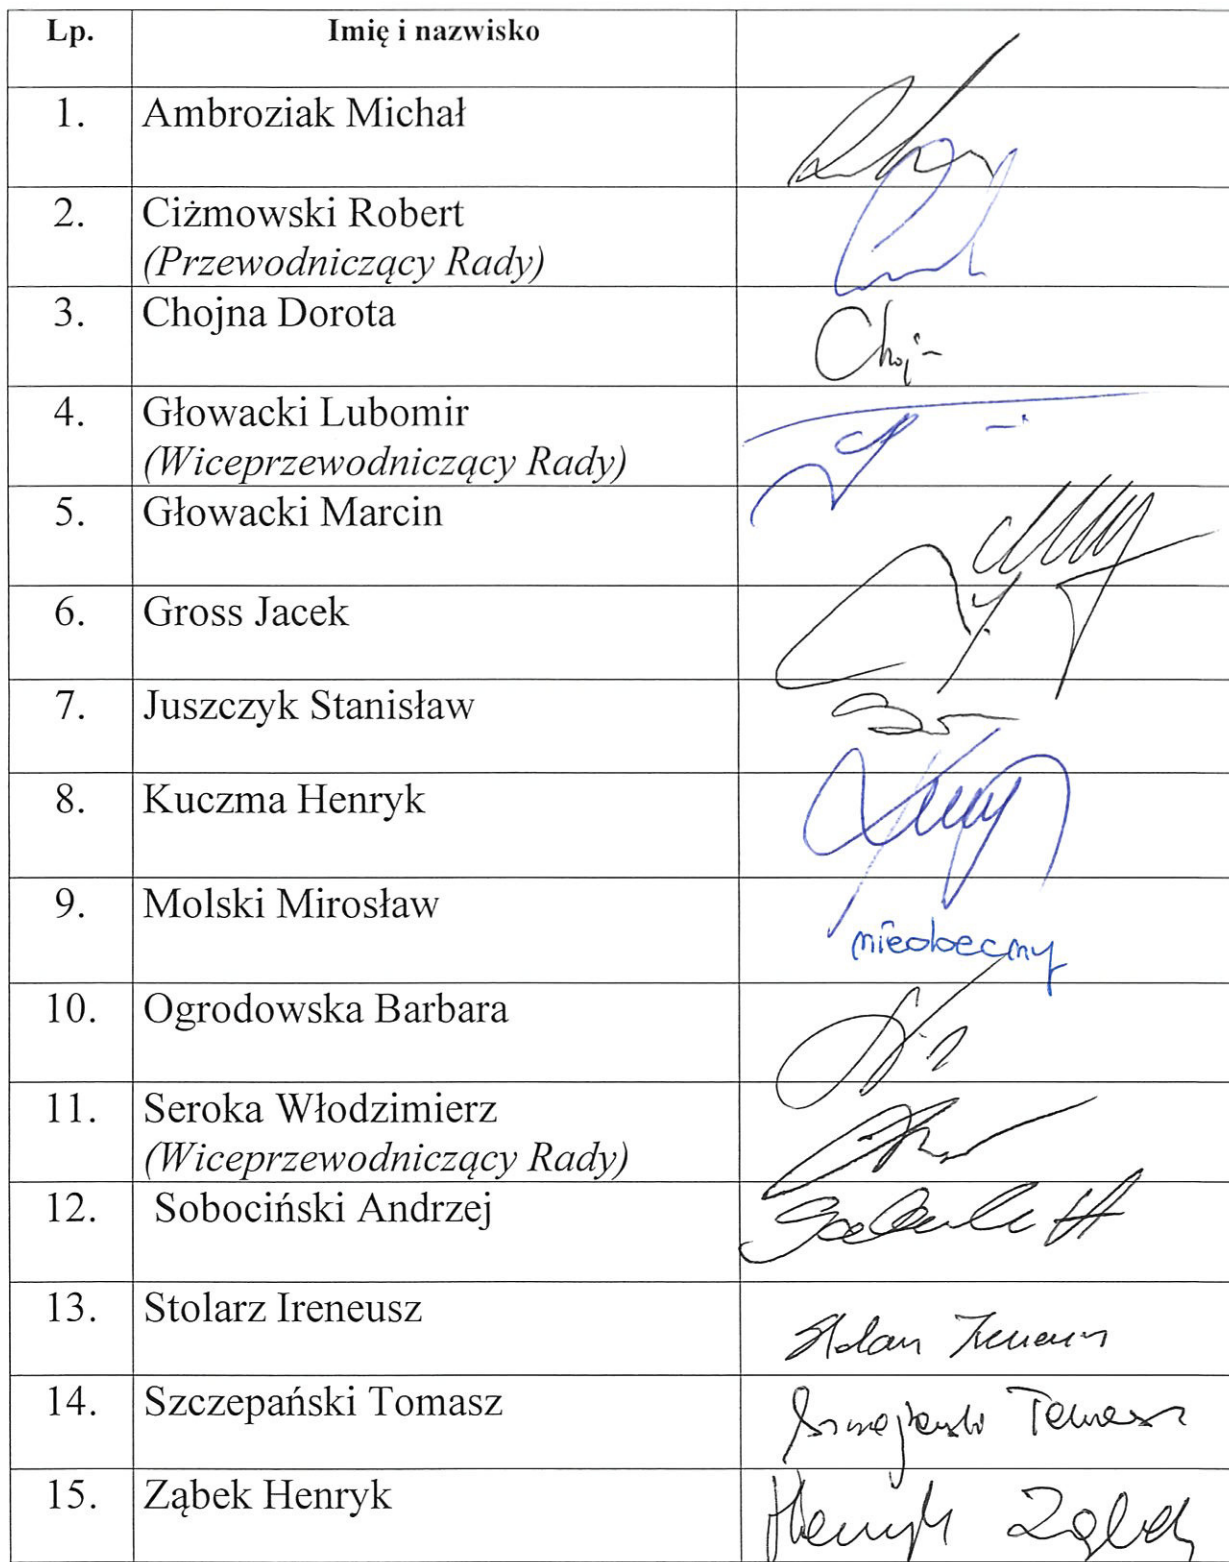 Lp. Imię i nazwisko
1. Ambroziak Michał
2. Ciżmowski Robert
(Przewodniczący Rady)
3. Chojna Dorota
Choj-
4. Głowacki Lubomir
(Wiceprzewodniczący Rady)
5. Głowacki Marcin
6. Gross Jacek
7. Juszczyk Stanisław
8. Kuczma Henryk
9. Molski Mirosław
nieobecny
10. Ogrodowska Barbara
11. Seroka Włodzimierz
(Wiceprzewodniczący Rady)
12. Sobociński Andrzej
13. Stolarz Ireneusz
14. Szczepański Tomasz Tomasz
15. Ząbek Henryk Henryk Ząbek